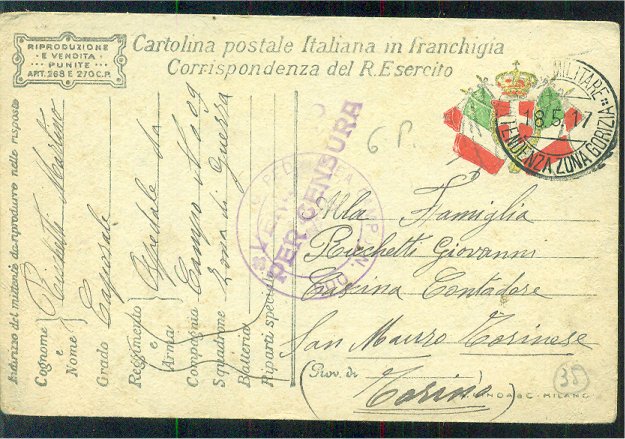 RIPRODUZIONE
E VENDITA
PUNITE
ART. 268 E 270 C.P.
Cartolina postale Italiana in franchigia
Corrispondenza del R. Esercito
MILITARE
18.5.17
INTENDENZA ZONA GORIZIA
6 P.
VERIFICATO
PER CENSURA
Indirizzo del mittente da riprodurre nelle risposte
Cognome e Nome Ricchetti Martino
Grado Caporale
Reggimento e Arma Ospedale da
Compagnia Campo 029
Squadrone Zona di Guerra
Batteria
Riparti speciali
Alla Famiglia
Ricchetti Giovanni
Cascina Contadore
San Mauro Torinese
(Prov. di Torino)
35
MILANO